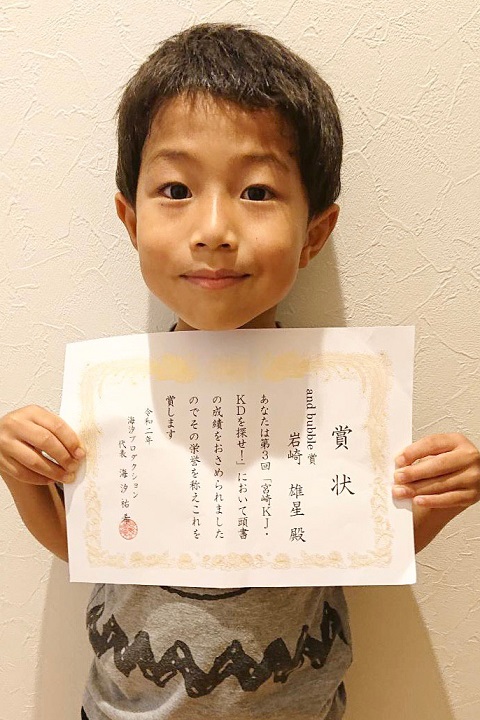 賞状
and bubble 賞
岩崎 雄星 殿
あなたは第3回「宮崎KJ・
KDを探せ!」において頭書
の成績をおさめられました
のでその栄誉を称えこれを
賞します
令和二年
海汐プロダクション
代表 海汐 祐